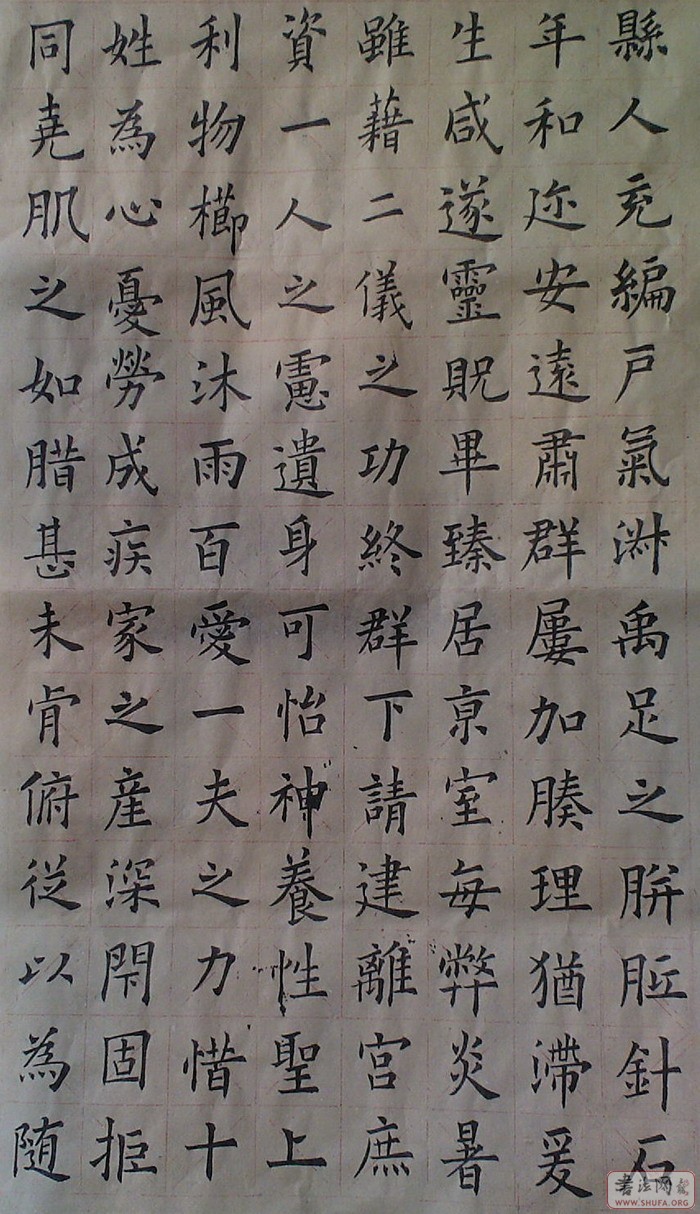 縣人充編戶氣淑禹足之胼胝針石
年和迩安遠肅群屢加腠理猶滯爰
生咸遂靈貺畢臻居京室每弊炎暑
雖藉二儀之功終群下請建離宮庶
資一人之慮遺身可怡神養性聖上
利物櫛風沐雨百愛一夫之力惜十
姓為心憂勞成疾家之産深閇固拒
同堯肌之如腊甚未肯俯從以為随
WWW.SHUFA.ORG